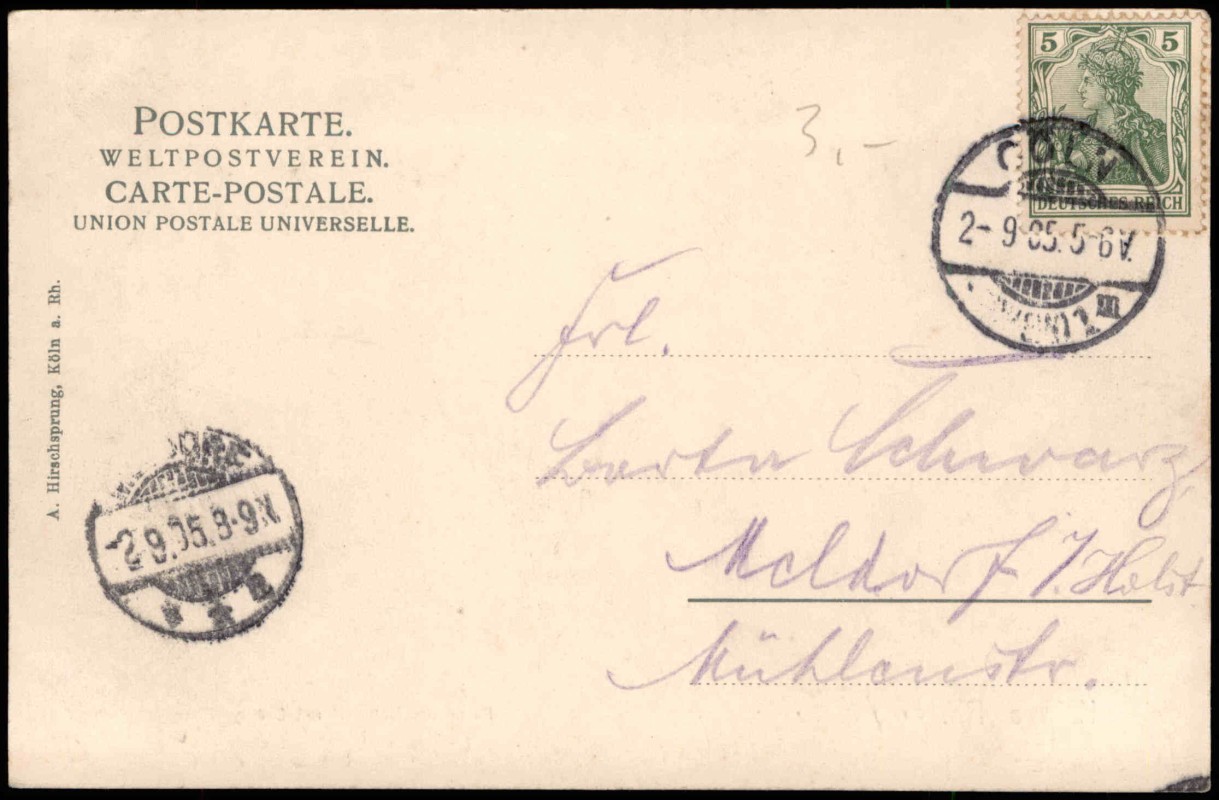 POSTKARTE.
WELTPOSTVEREIN.
CARTE-POSTALE.
UNION POSTALE UNIVERSELLE.
A. Hirschsprung, Köln a. Rh.
3,-
5 5
DEUTSCHES REICH
CÖLN
2-9 05. 5-6V.
-2.9.05.8-9.V.
Frl.
Berta Schwarz
Meldorf i/Holst
Mühlenstr.